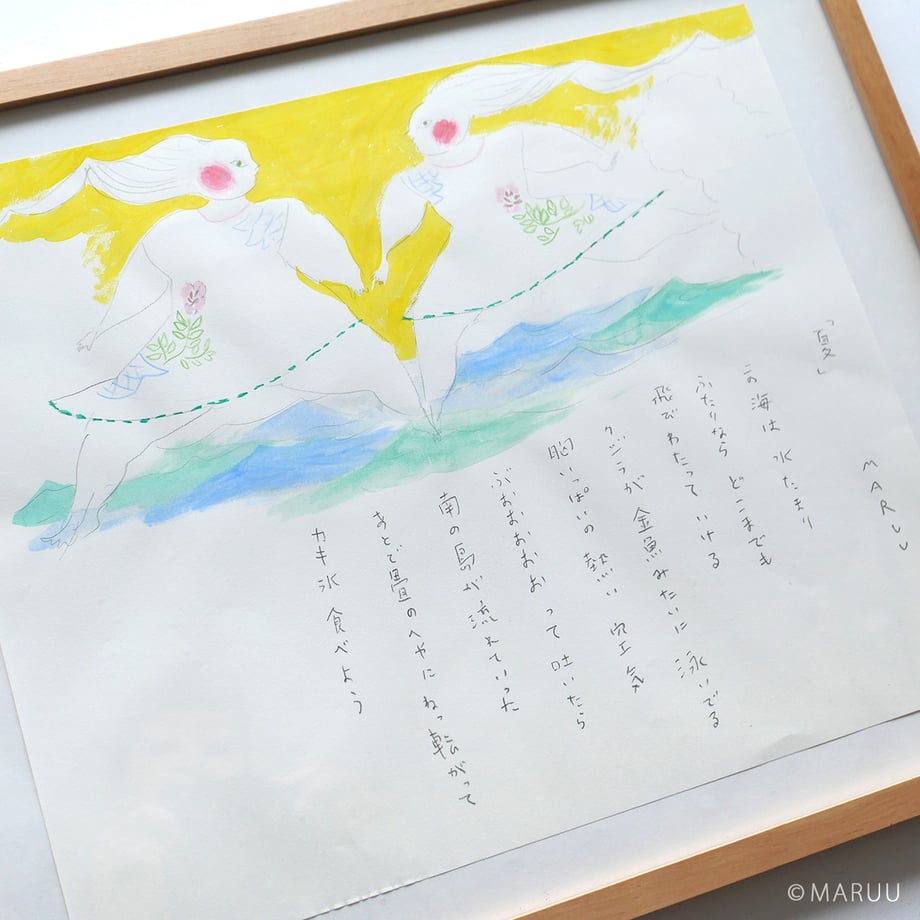 「夏」
MARUU
この海は 水たまり
ふたりなら どこまでも
飛びわたって いける
クジラが 金魚みたいに 泳いでる
胸いっぱいの 熱い 空気
ぶおおおおおって 吐いたら
南の島が 流れていった
あとで畳のへやに ねっ転がって
カキ氷 食べよう
©MARUU